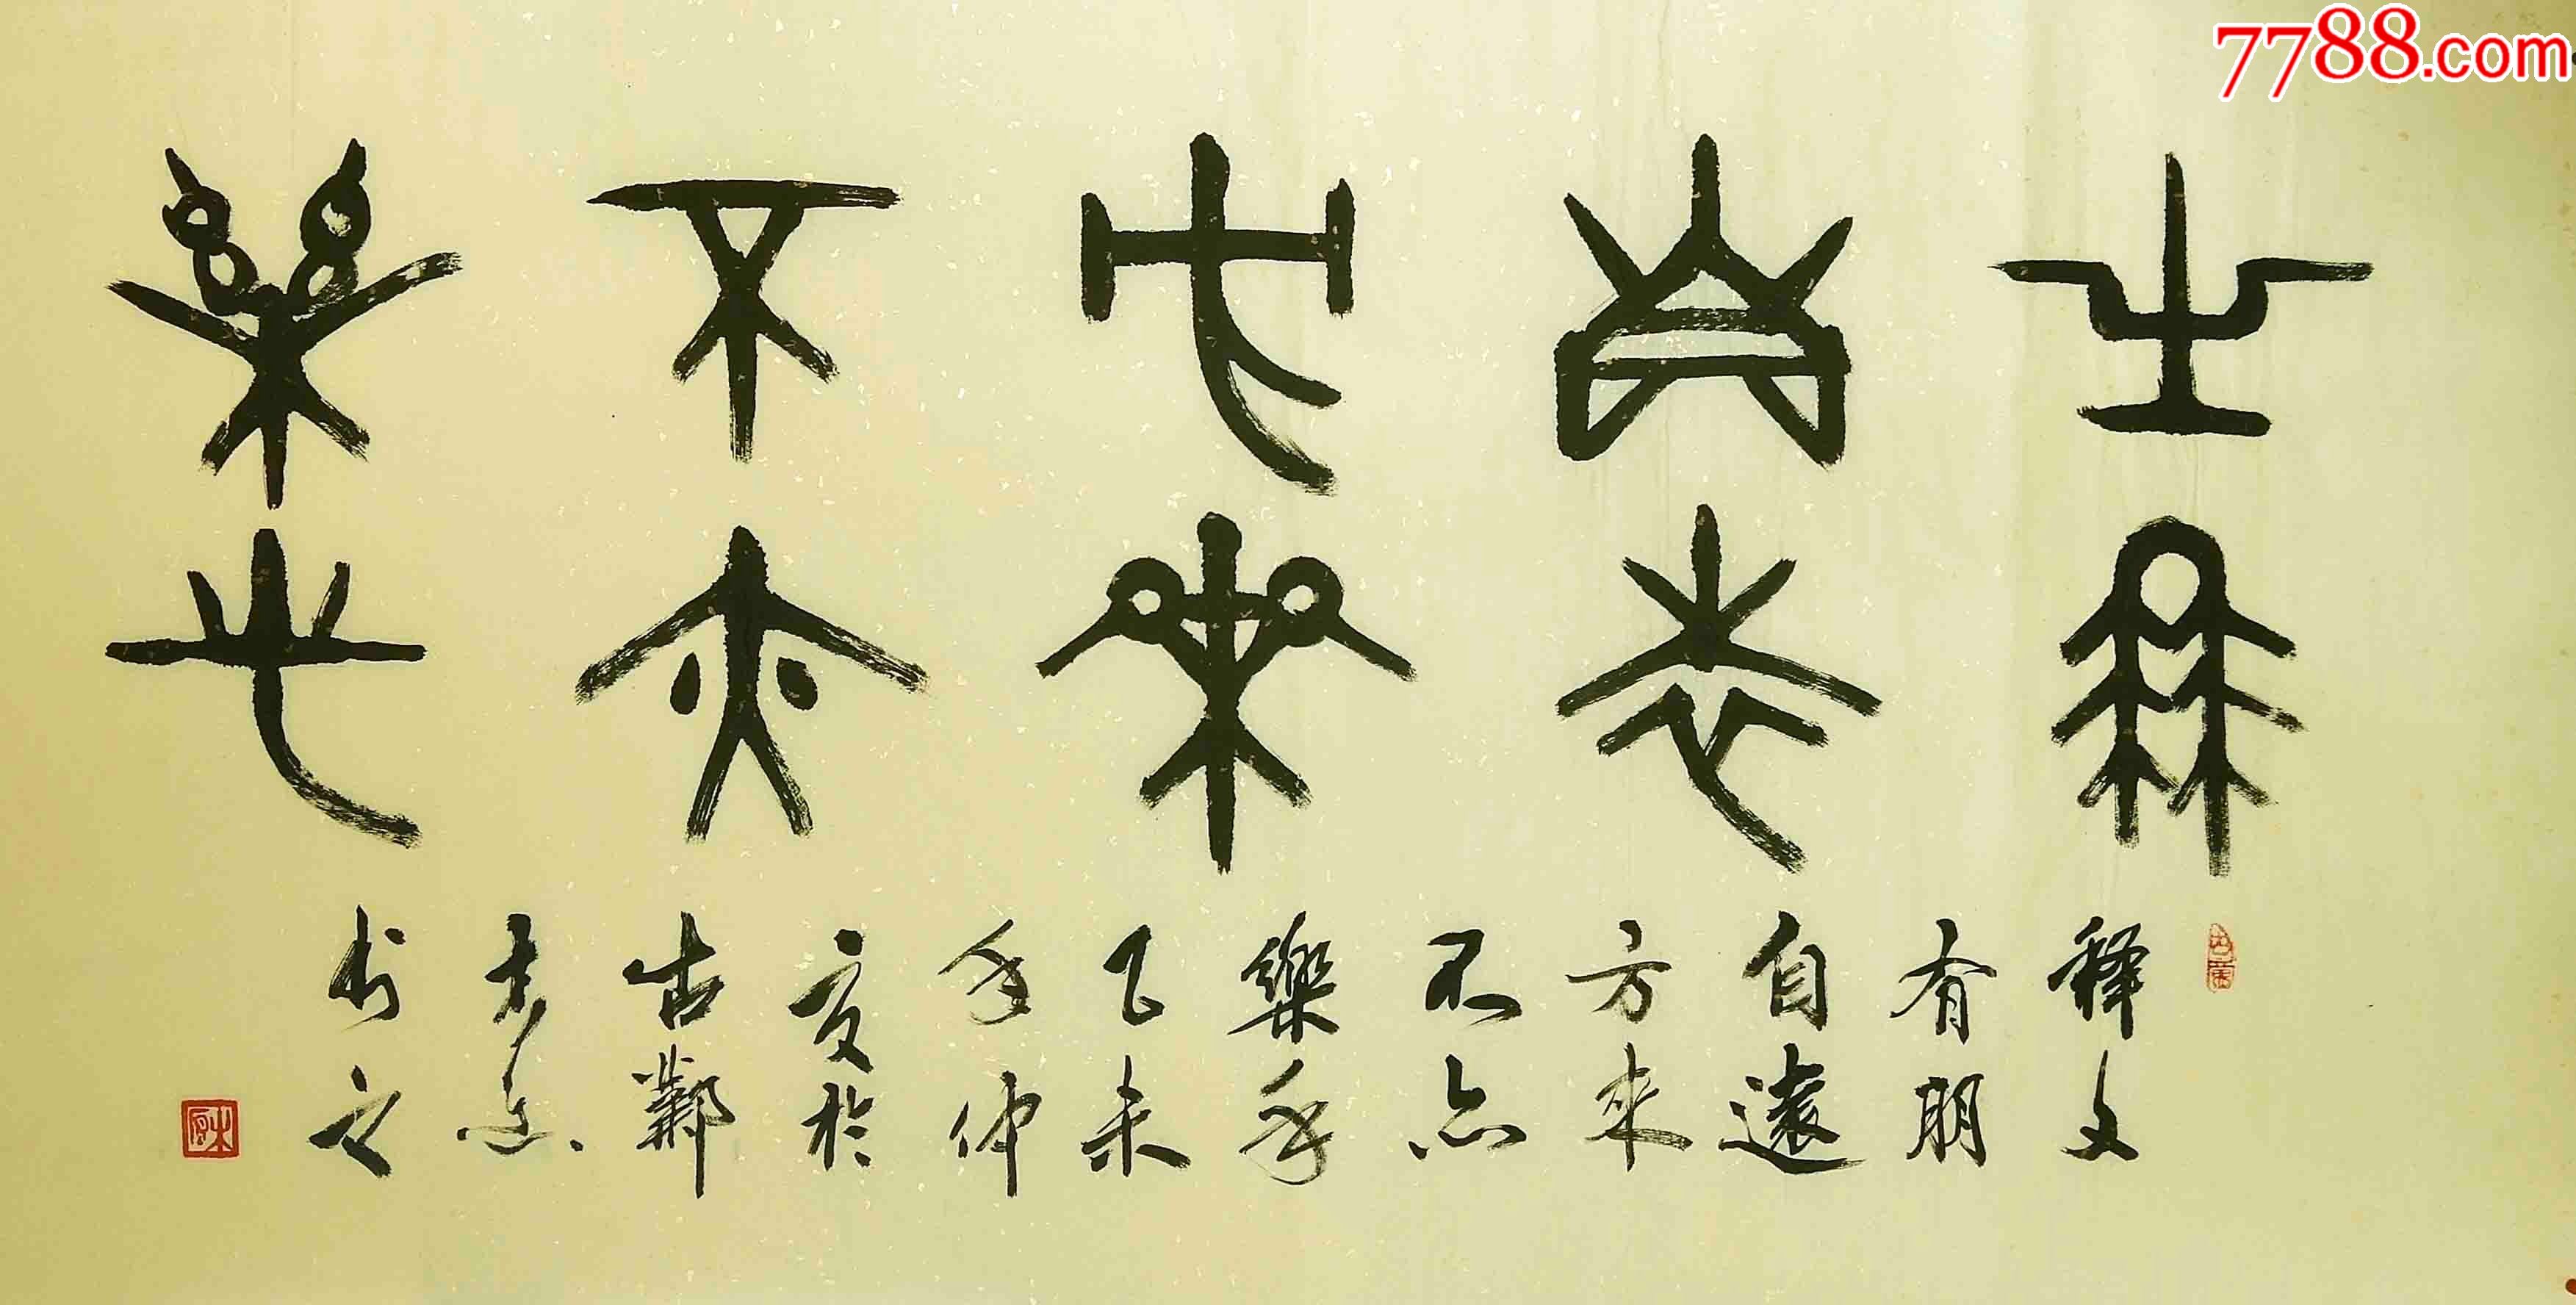 7788.com
㞢朋
自遠
方來
不亦
樂乎
释文
有朋
自遠
方来
不亦
樂乎
乙未
年仲
夏於
古鄴
书之